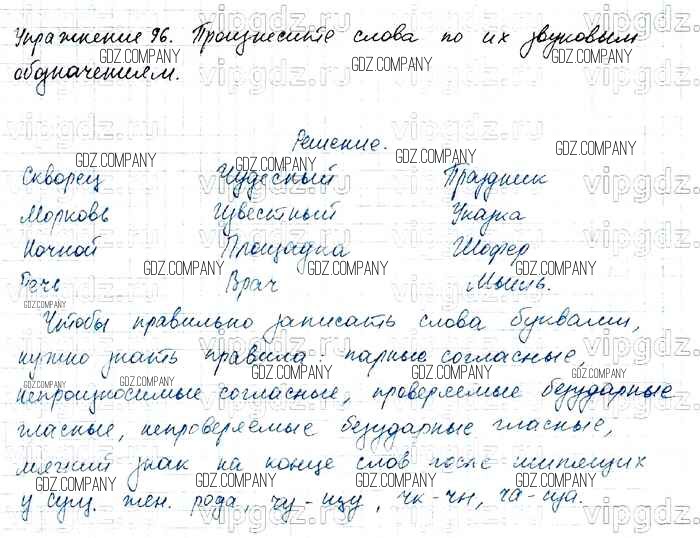 Упражнение 96. Произнесите слова по их звуковым
обозначениям.
Решение.
Скворец Чудесный Праздник
Морковь Известный Указка
Ночной Площадка Шофер
Речь Врач Мышь.
Чтобы правильно записать слова буквами,
нужно знать правила: парные согласные,
непроизносимые согласные, проверяемые безударные
гласные, непроверяемые безударные гласные,
мягкий знак на конце слов после шипящих
у сущ. жен. рода, чу-щу, чк-чн, ча-ща.
GDZ.COMPANY
vipgdz.ru